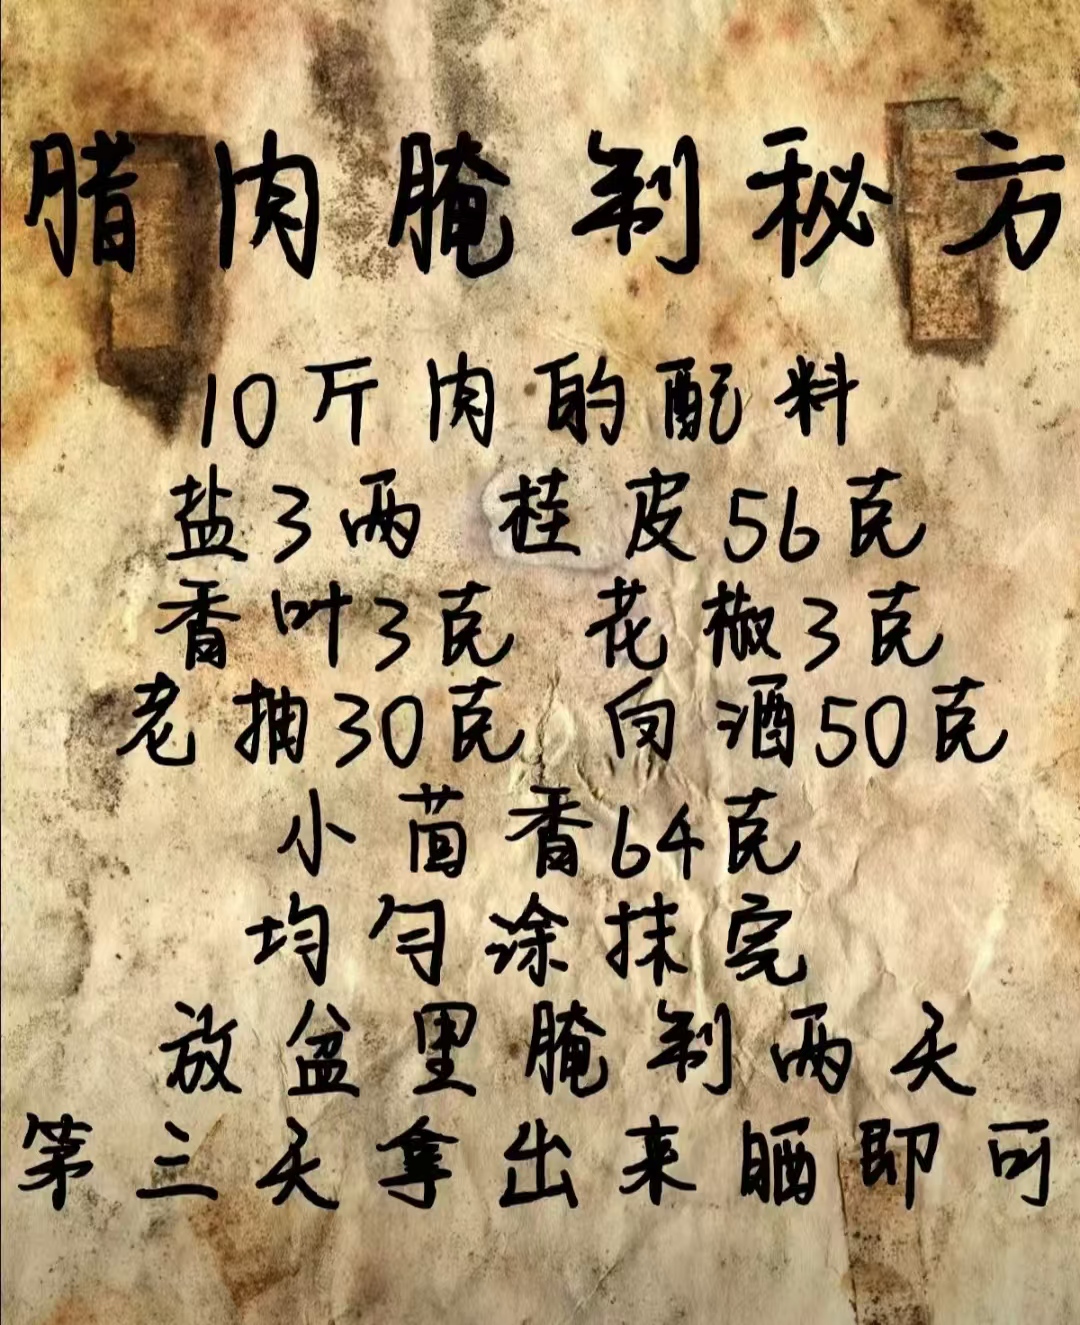 腊肉腌制秘方
10斤肉的配料
盐3两 桂皮56克
香叶3克 花椒3克
老抽30克 白酒50克
小茴香64克
均匀涂抹完
放盆里腌制两天
第三天拿出来晒即可